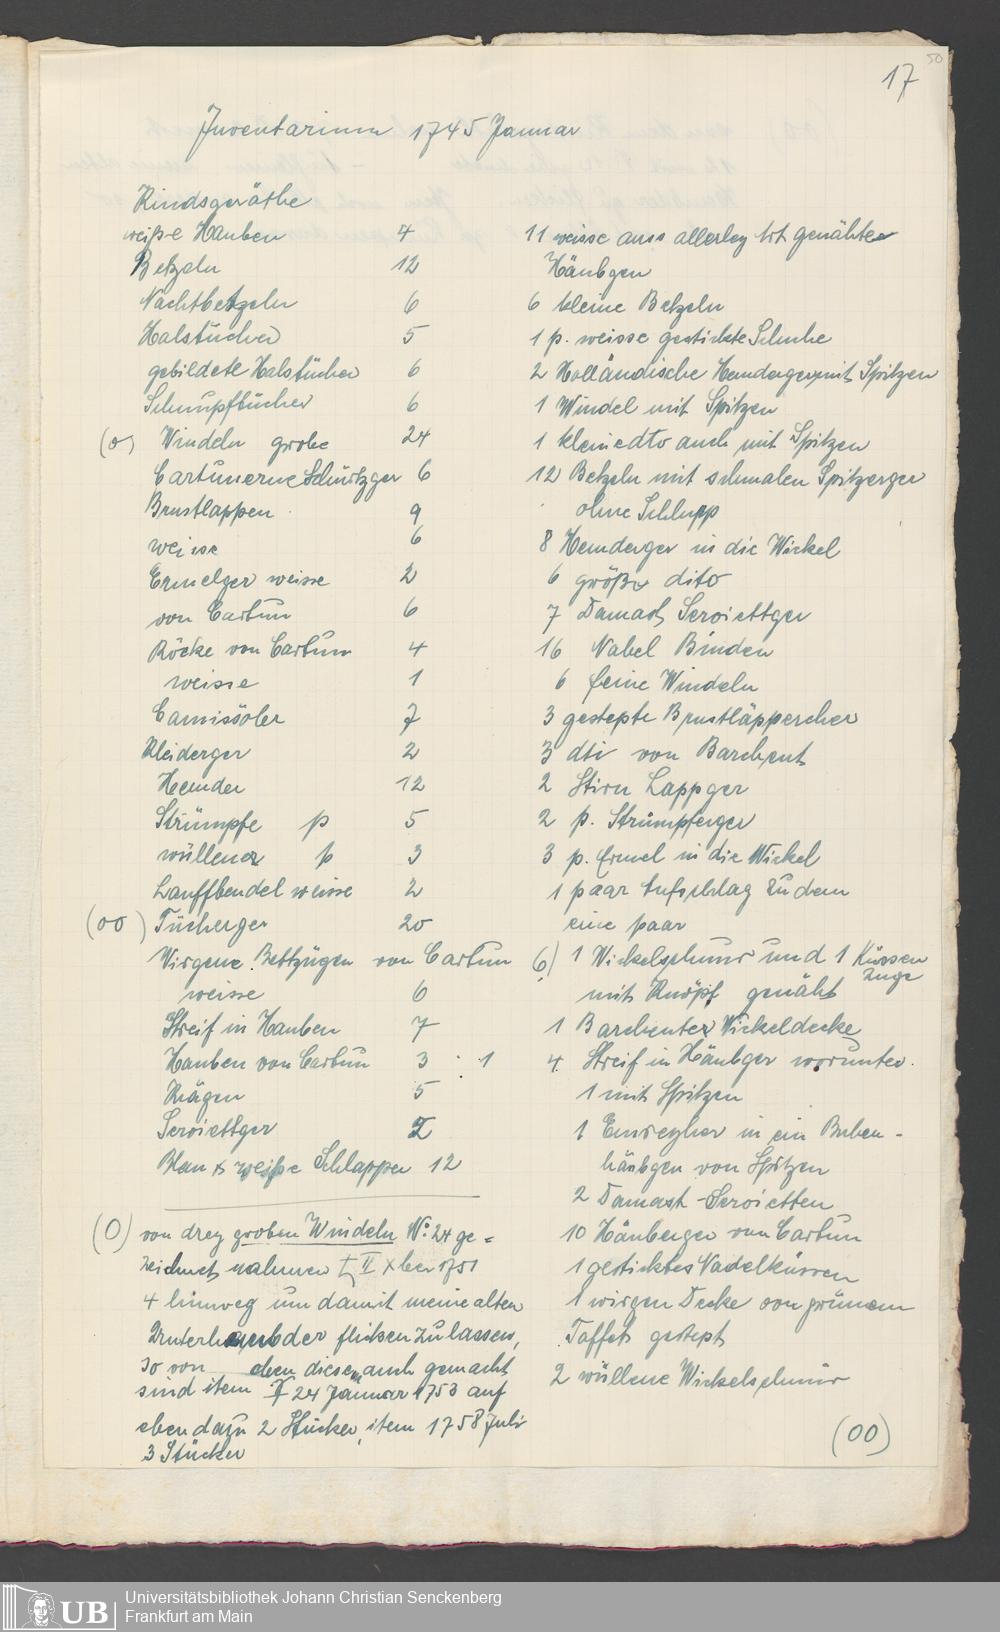 17
50
Inventarium 1745 Januar
Kindsgeräthe
weiße Hauben 4
Betzeln 12
Nachtbetzeln 6
Halstücher 5
gebildete Halstücher 6
Schnupftücher 6
(0) Windeln grobe 24
Cartunerne Schürtzger 6
Brustlappen 9
weisse 6
Ermelger weisse 2
von Cartun 6
Röcke von Cartun 4
weisse 1
Camisöler 7
Kleiderger 2
Hemder 12
Strümpfe p 5
wüllener p 3
Lauffbendel weisse 2
(00) Tücherger 20
Wirgene Bettzügen von Cartun
weisse 6
Streif in Hauben 7
Hauben von Cartun 3 · 1
Krägen 5
Serviettger
Blau & weiße Schlappen 12
(0) von drey groben Windeln No: 24 ge=
zeichnet nahmen II Xber 1751
4 hinweg um damit meine alten
Unterhembder flicken zu lassen,
so von eben diesen auch gemacht
sind item 24 Januar 1753 auf
eben dazu 2 Stücker, item 1758 Juli
3 Stücker
11 weisse auss allerley Art genähte
Häubgen
6 kleine Betzeln
1 p. weisse gestickte Schuhe
2 Holländische Hemderger mit Spitzen
1 Windel mit Spitzen
1 kleine dto auch mit Spitzen
12 Betzeln mit schmalen Spitzerger
ohne Schlupp
8 Hemderger in die Wickel
6 größer dito
7 Damast Serviettger
16 Nabel Binden
6 feine Windeln
3 gestepte Brustläppercher
3 dti von Barchent
2 Stirn Lappger
2 p. Strümpferger
3 p. Ermel in die Wickel
1 paar Aufschlag zu dem
eine paar
6) 1 Wickelschnur und 1 Küssen
zuge
mit Knöpf genäht
1 Barchenter Wickeldecke
4 Streif in Häubger worunter
1 mit Spitzen
1 in ein Buben-
häubgen von Spitzen
2 Damast-Servietten
10 Häuberger von Cartun
1 gesticktes Nadelküssen
1 wirgen Decke von grünem
Taffet gestept
2 wüllene Wickelschnür
(00)
UB
Universitätsbibliothek Johann Christian Senckenberg
Frankfurt am Main